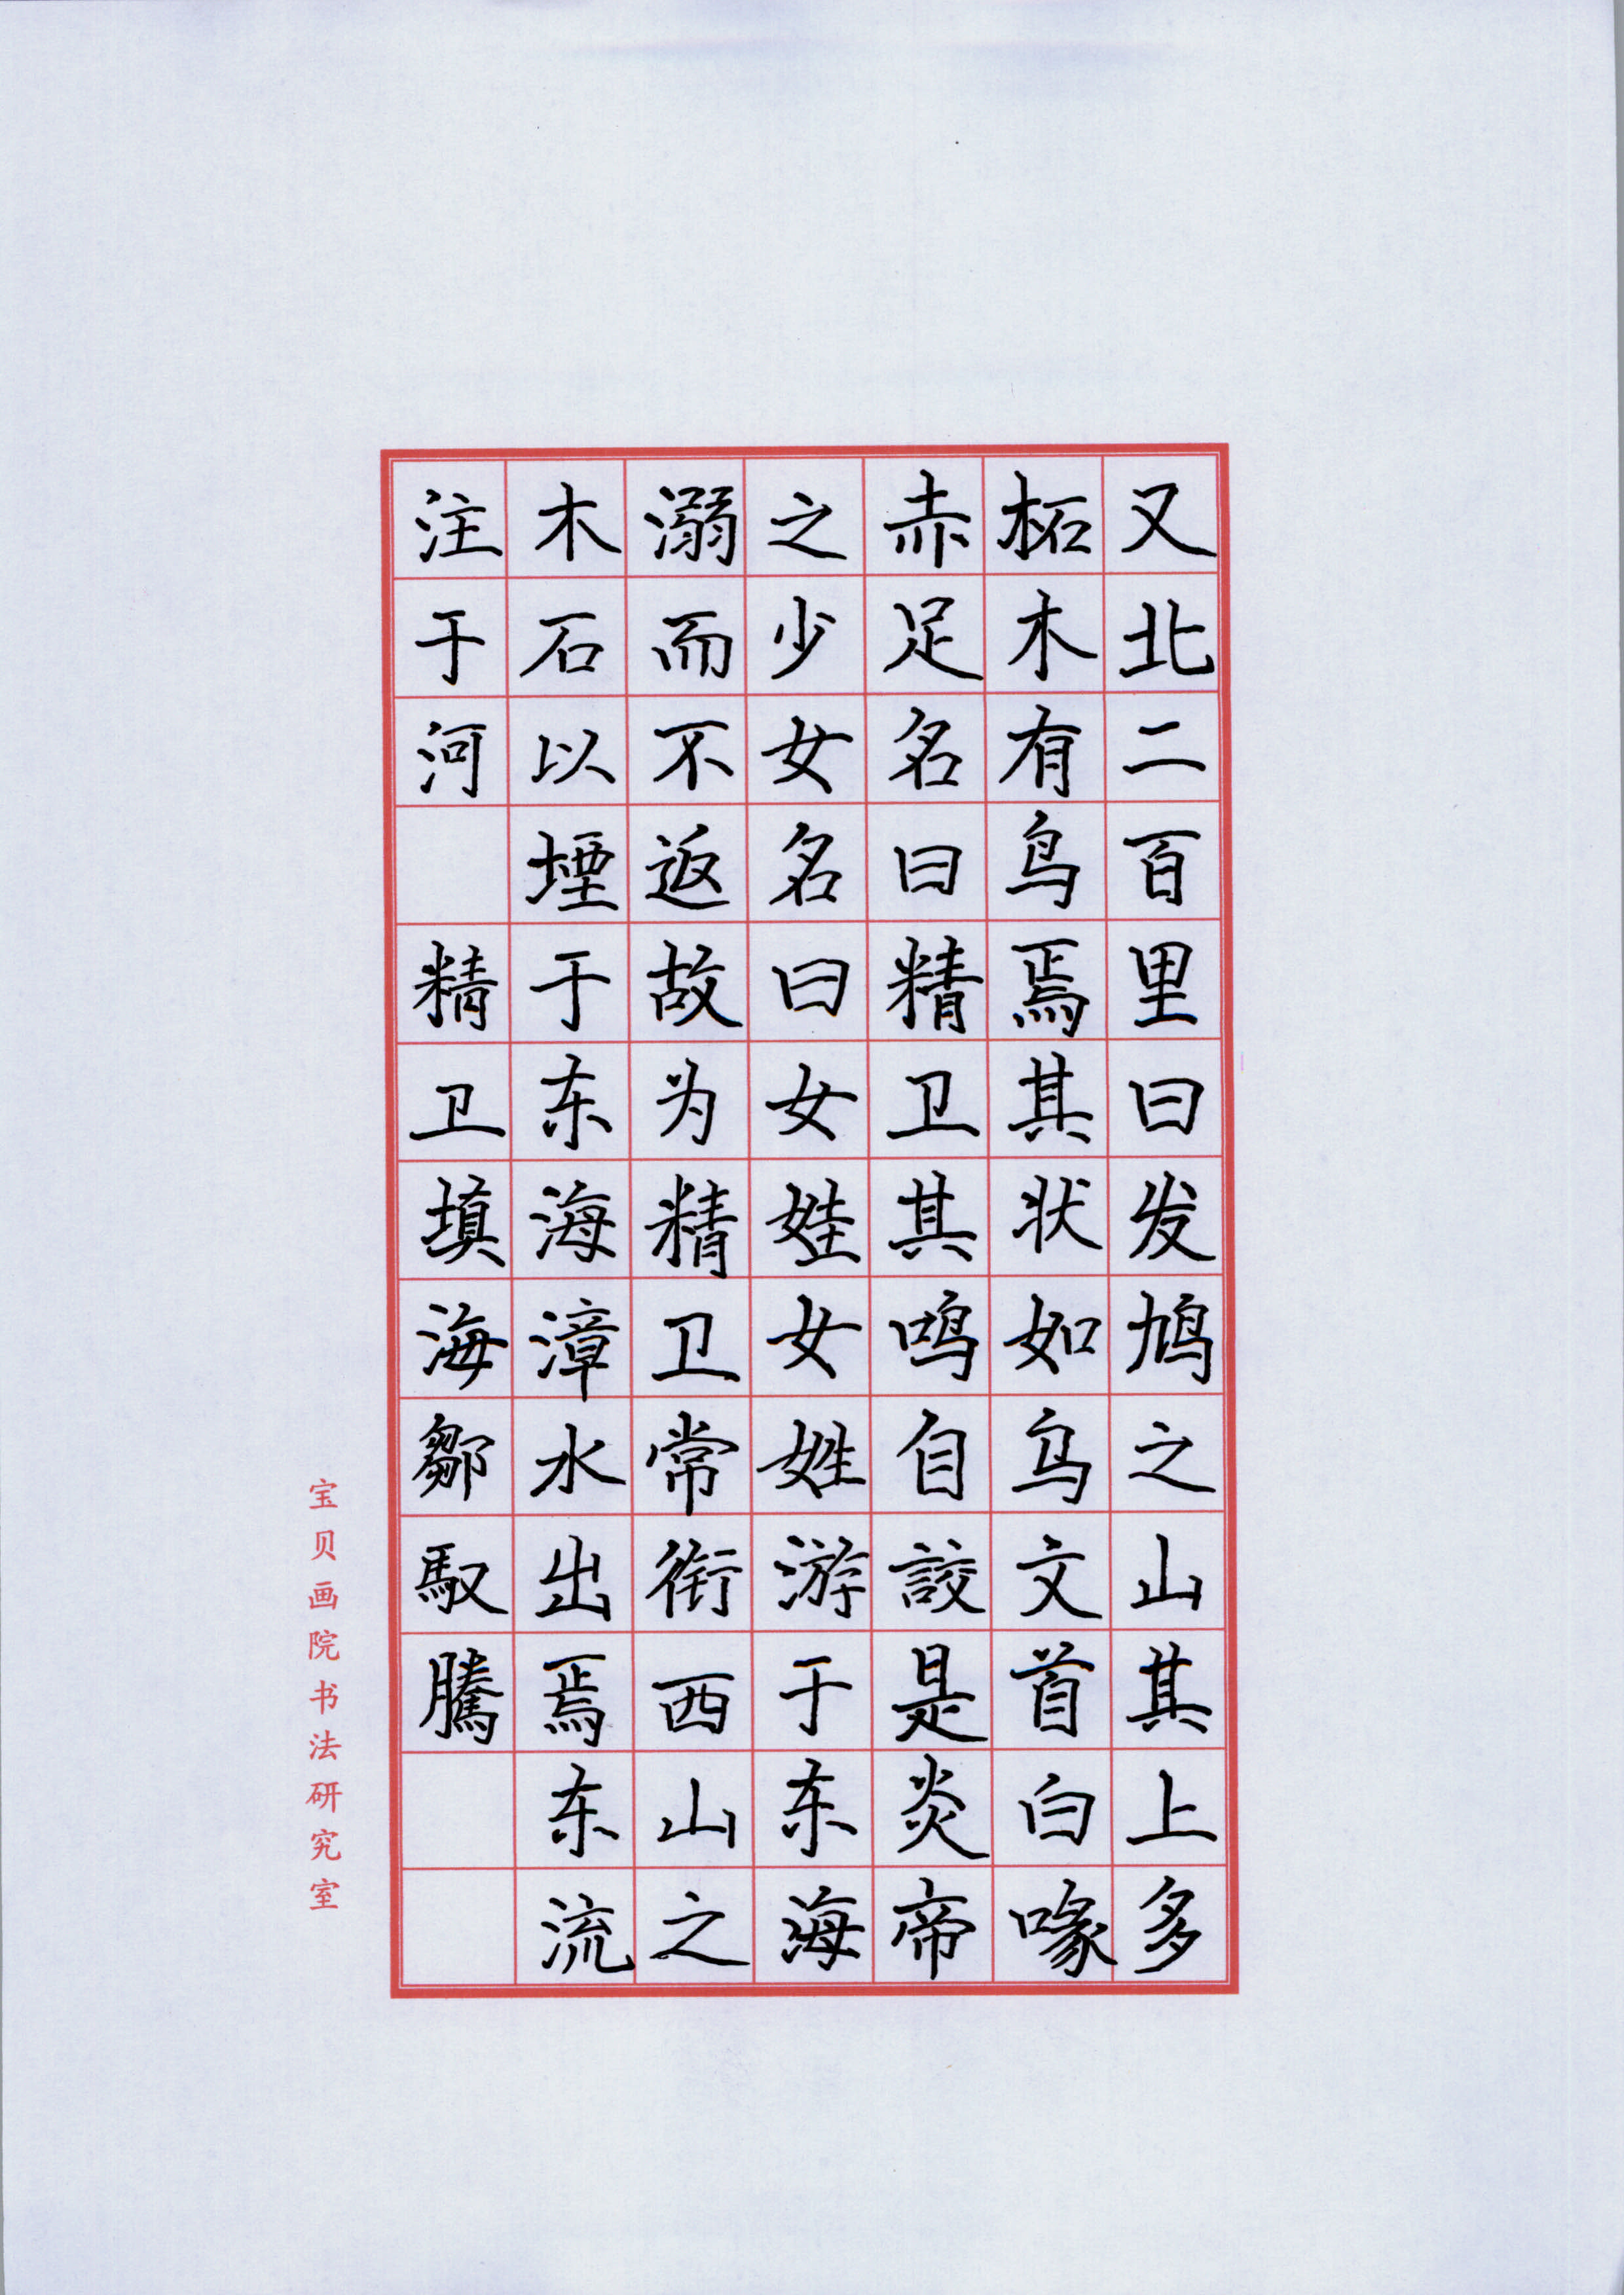 又北二百里曰发鸠之山其上多
柘木有鸟焉其状如乌文首白喙
赤足名曰精卫其鸣自詨是炎帝
之少女名曰女娃女姓游于东海
溺而不返故为精卫常衔西山之
木石以堙于东海漳水出焉东流
注于河 精卫填海鄒馭騰
宝贝画院书法研究室